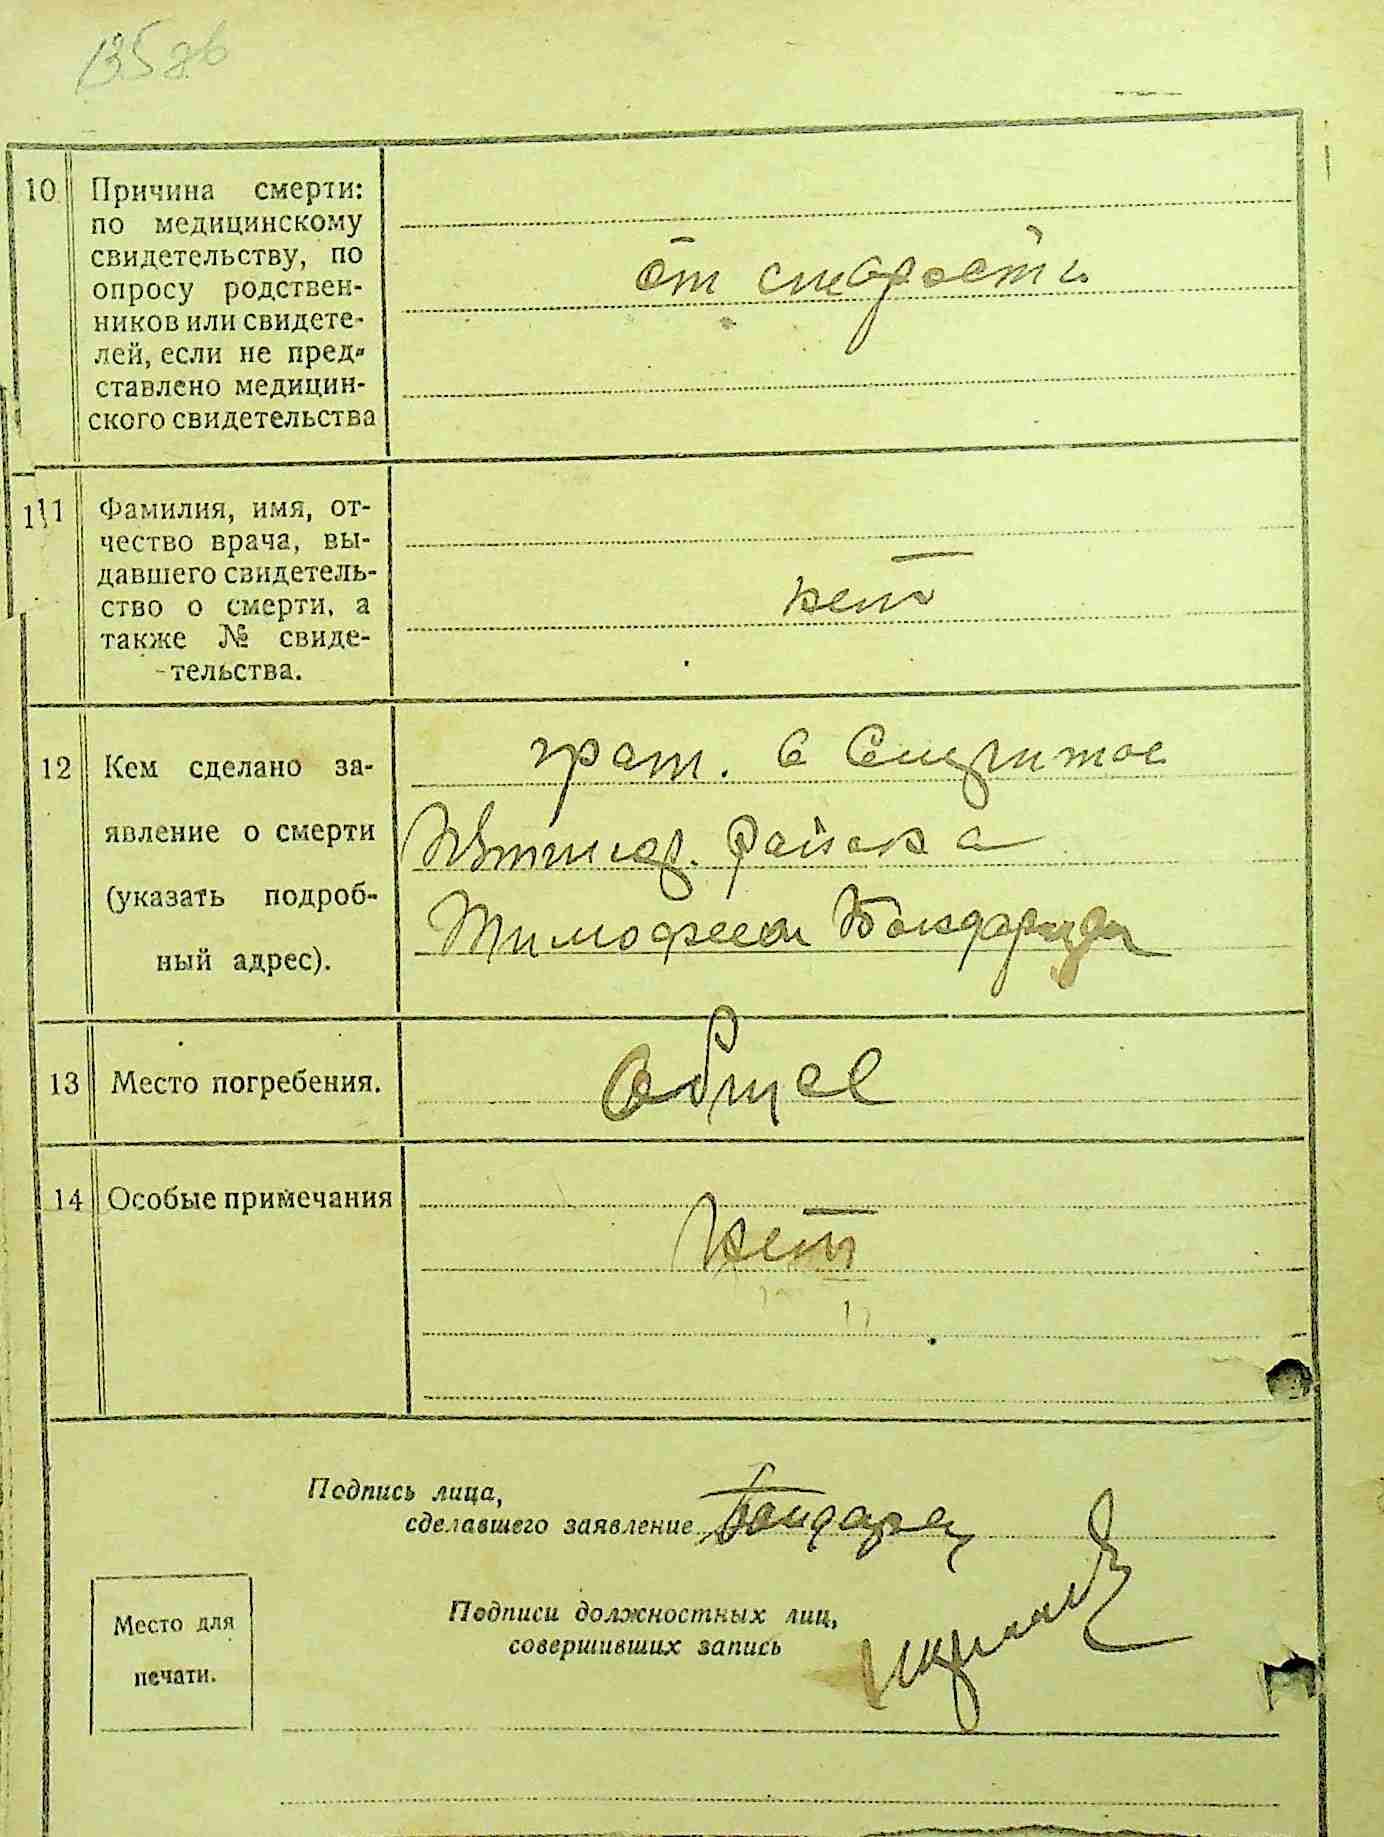 135 об
10 Причина смерти:
по медицинскому
свидетельству, по
опросу родствен-
ников или свидете-
лей, если не пред-
ставлено медицин-
ского свидетельства
от старости
11 Фамилия, имя, от-
чество врача, вы-
давшего свидетель-
ство о смерти, а
также № свиде-
-тельства.
нет
12 Кем сделано за-
явление о смерти
(указать подроб-
ный адрес).
района
Тимофеем
13 Место погребения.
Общее
14 Особые примечания
Нет
Подпись лица,
сделавшего заявление Бондарец
Подписи должностных лиц,
совершивших запись
Место для
печати.